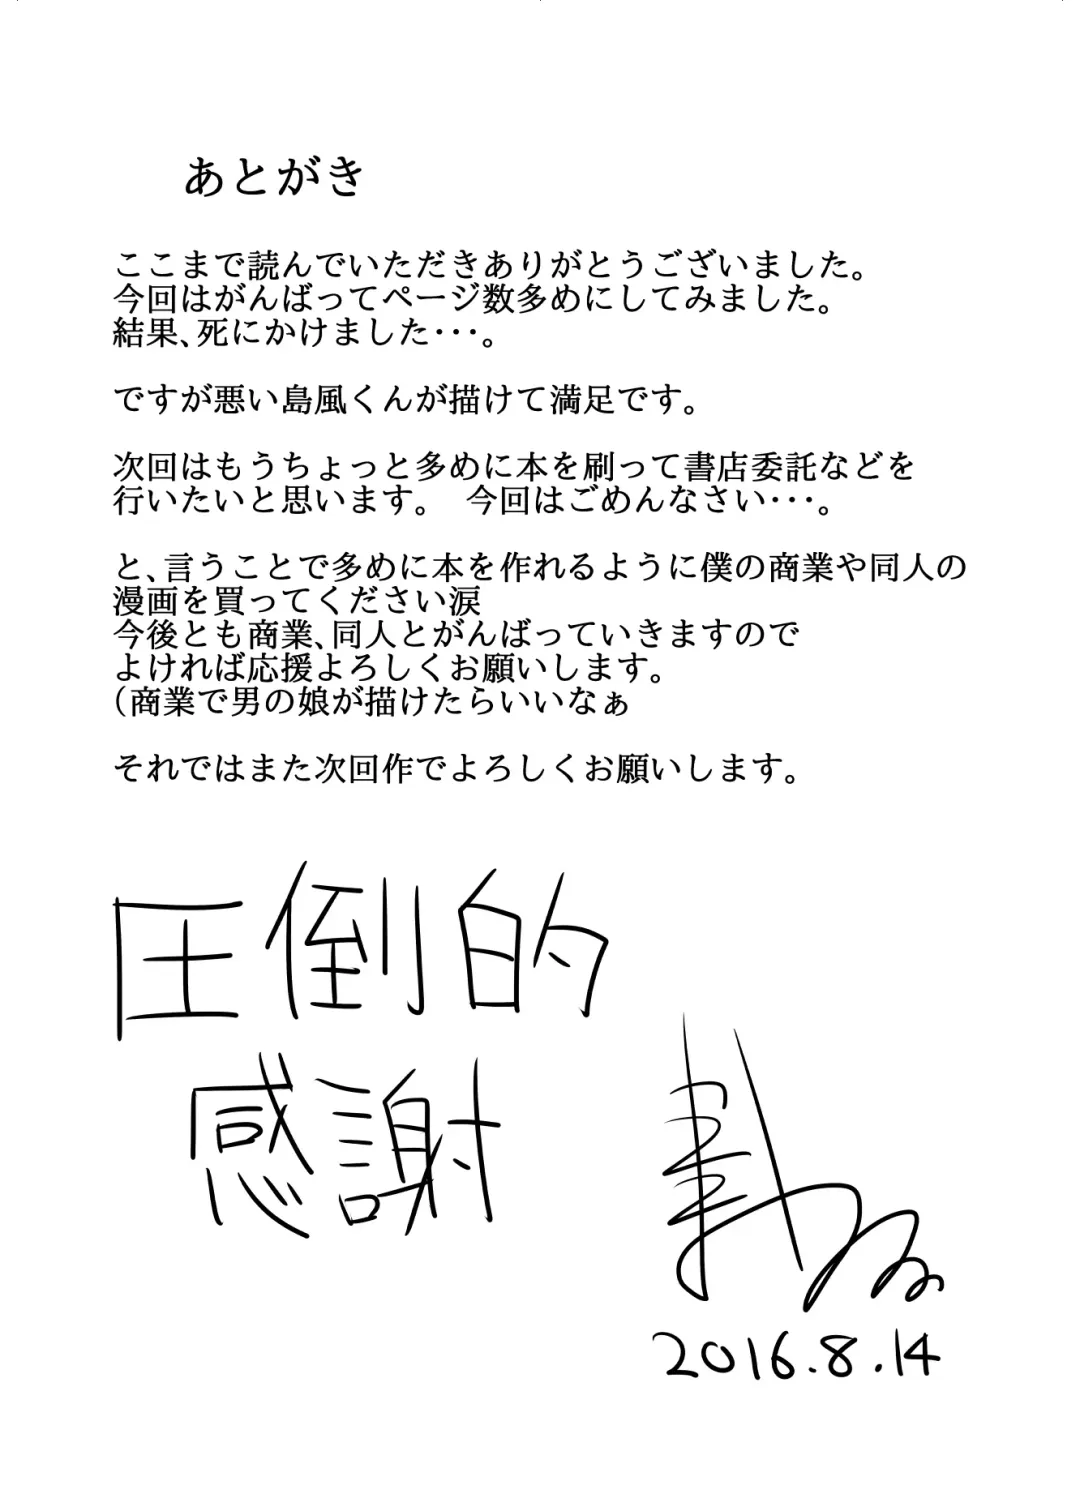 あとがき
ここまで読んでいただきありがとうございました。
今回はがんばってページ数多めにしてみました。
結果、死にかけました・・・。
ですが悪い島風くんが描けて満足です。
次回はもうちょっと多めに本を刷って書店委託などを
行いたいと思います。　今回はごめんなさい・・・。
と、言うことで多めに本を作れるように僕の商業や同人の
漫画を買ってください涙
今後とも商業、同人とがんばっていきますので
よければ応援よろしくお願いします。
（商業で男の娘が描けたらいいなぁ
それではまた次回作でよろしくお願いします。
圧倒的
感謝
2016.8.14